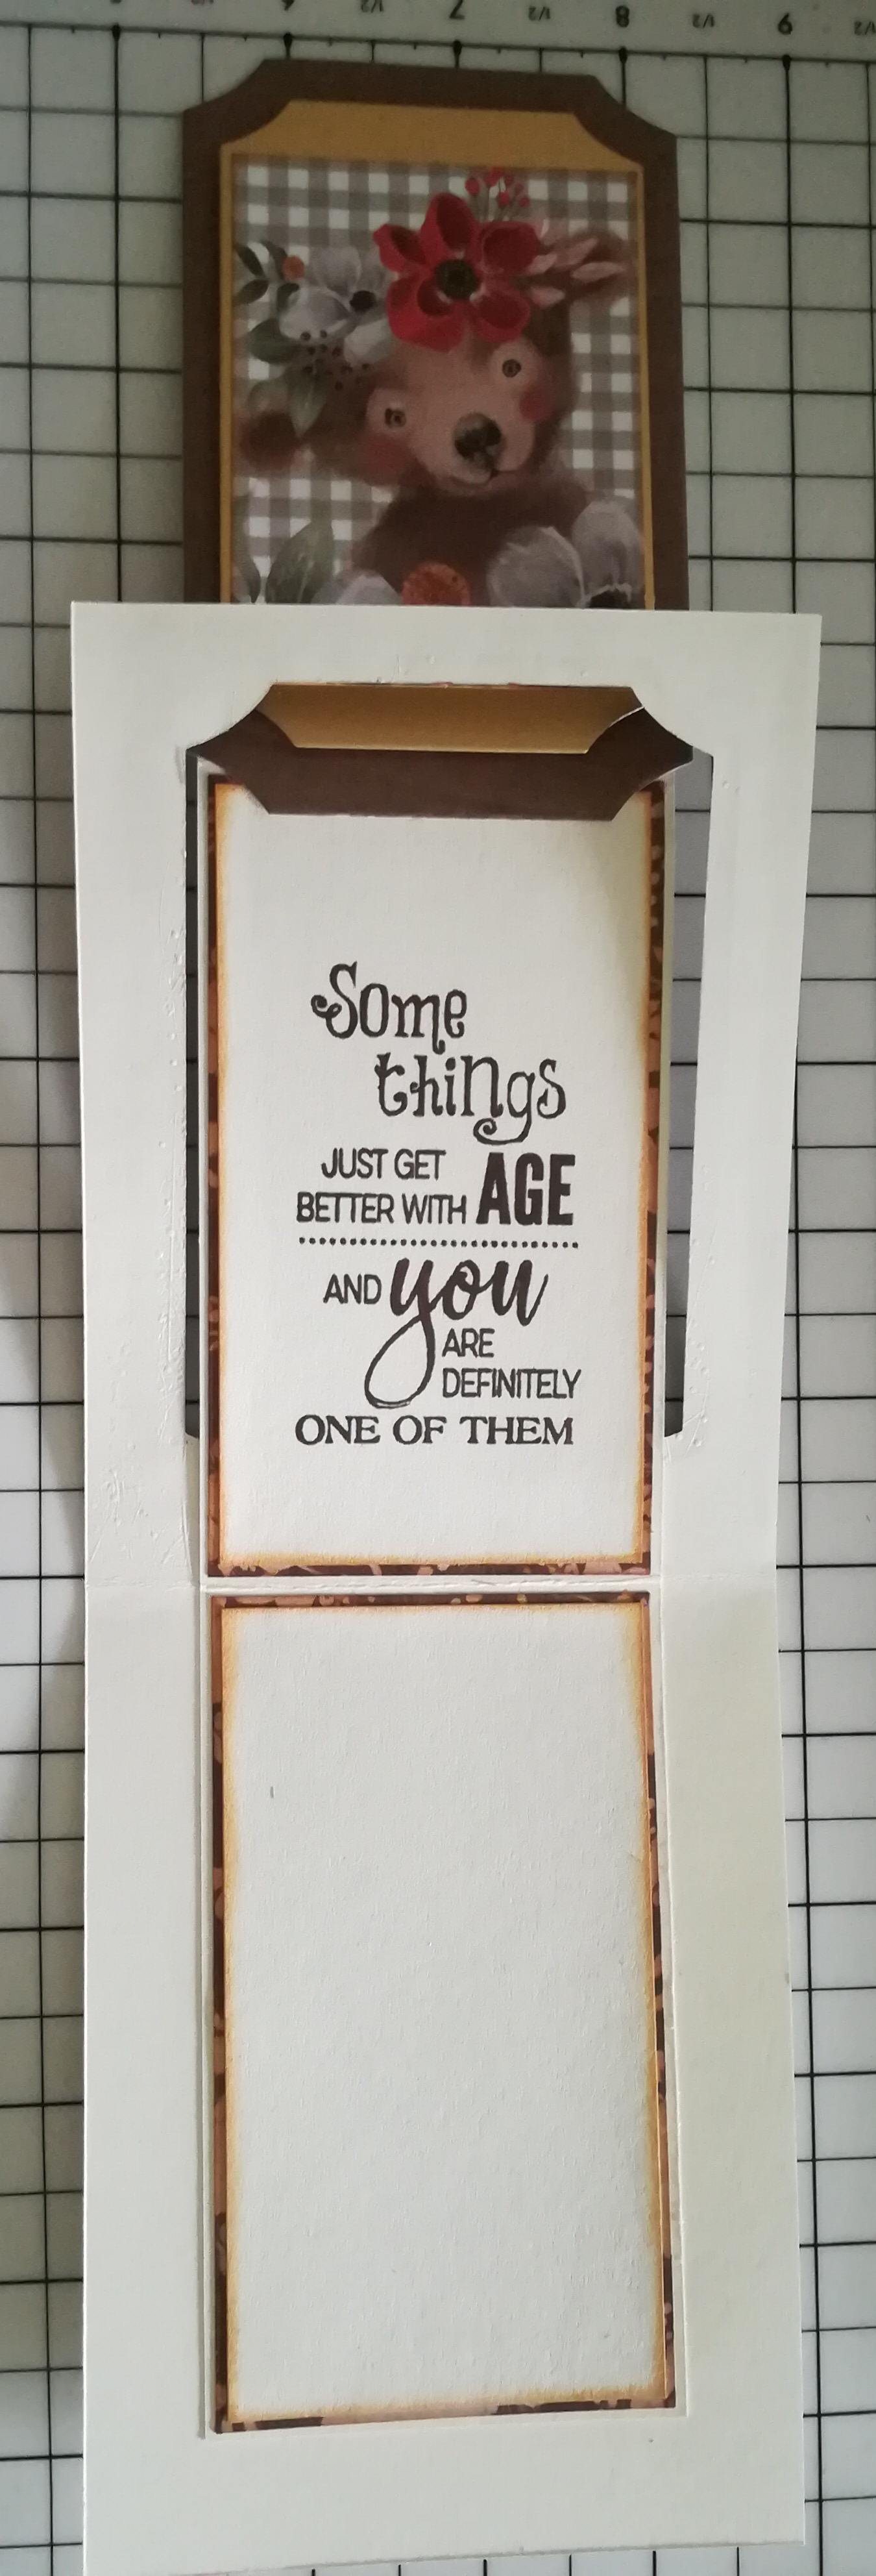 6 1/2 7 1/2 8 1/2 9 1/2
Some
things
JUST GET
BETTER WITH AGE
AND you
ARE
DEFINITELY
ONE OF THEM